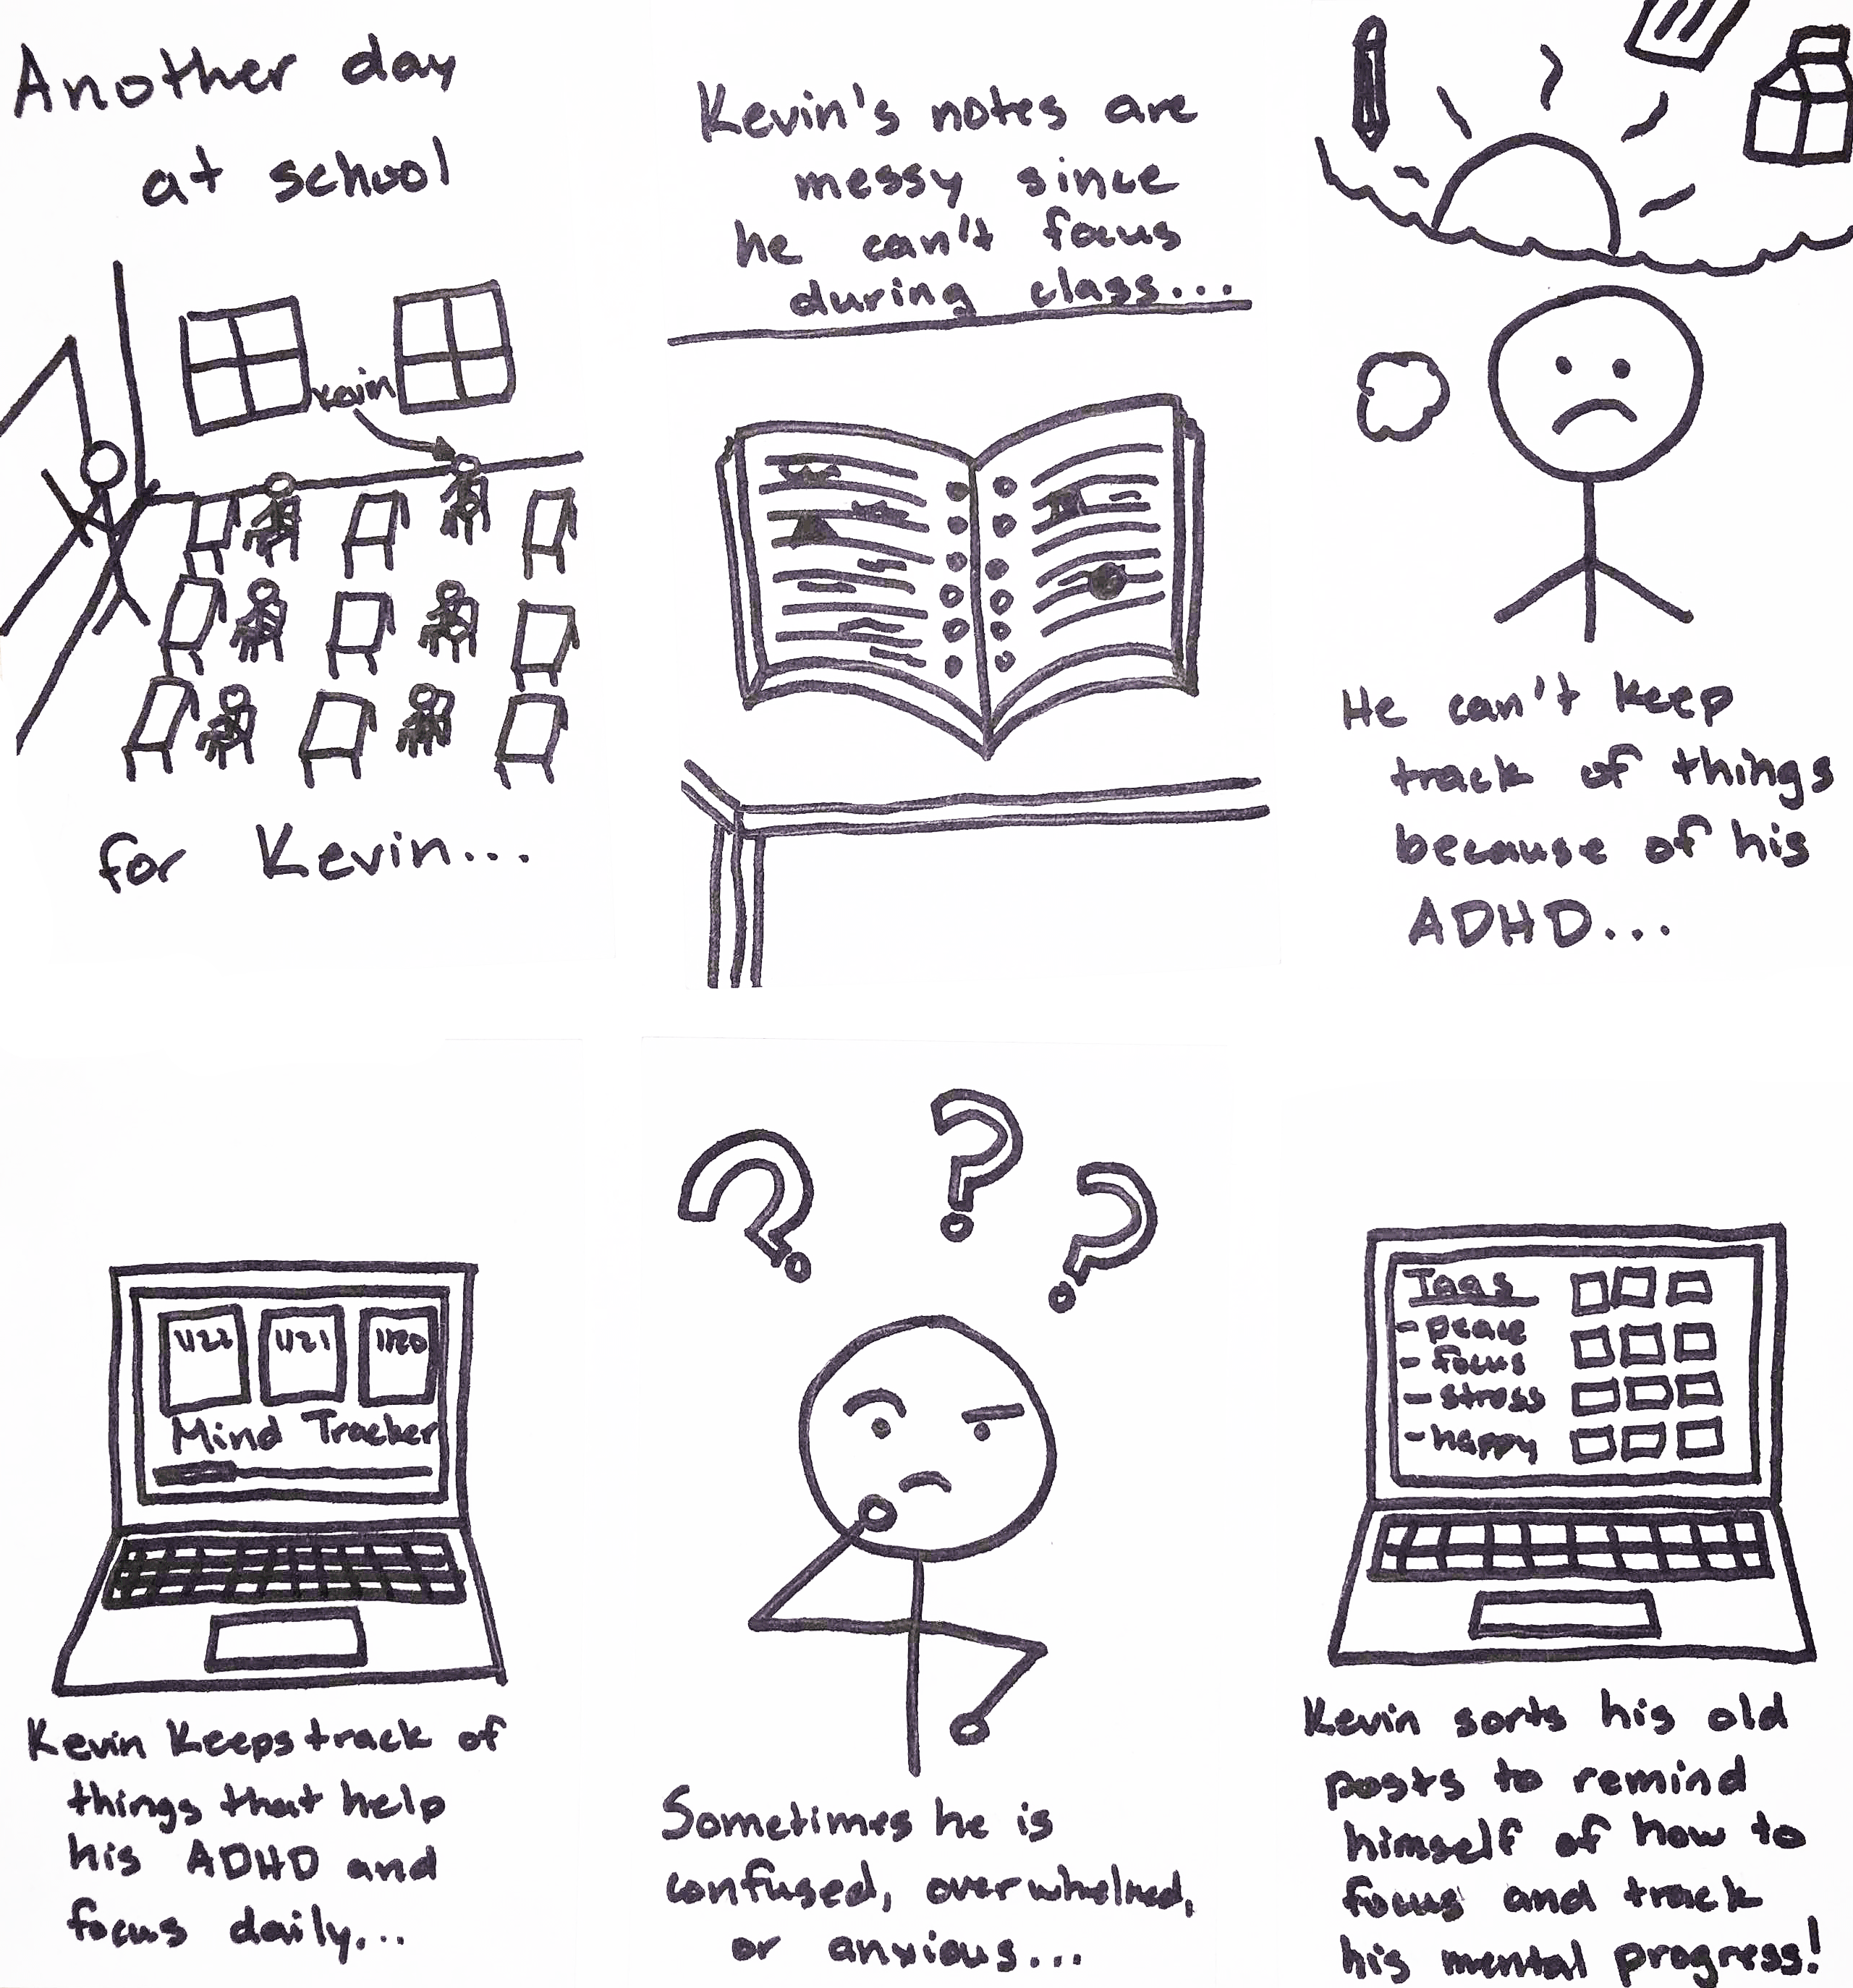 Another day
at school
Kevin
for Kevin...
Kevin's notes are
messy since
he can't focus
during class...
He can't keep
track of things
because of his
ADHD...
11/22 11/21 11/20
Mind Tracker
Kevin keeps track of
things that help
his ADHD and
focus daily...
Sometimes he is
confused, overwhelmed,
or anxious...
Tags
- peace
- focus
- stress
- happy
Kevin sorts his old
posts to remind
himself of how to
focus and track
his mental progress!